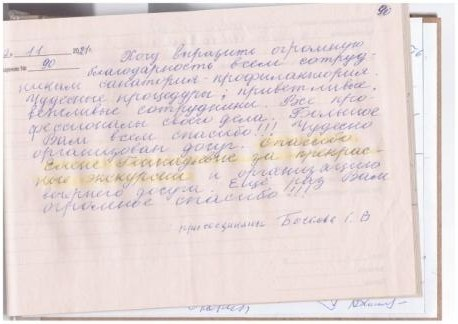 90
2. 11 2021г.
90
Хочу выразить огромную
благодарность всем сотруд-
никам санатория-профилактория.
Чудесные процедуры, приветливые
вежливые сотрудники. Все про-
фессионалы своего дела. Большое
Вам всем спасибо!!! Чудесно
организован досуг. Спасибо
за прекрас-
ные экскурсии и организацию
вечернего досуга. Ещё раз Вам
огромное спасибо!!!!